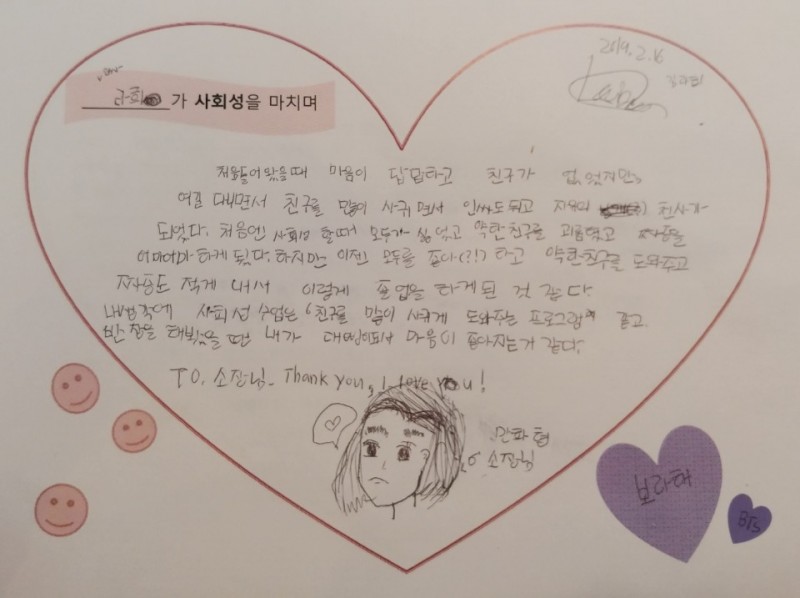 2019. 2. 16
가 사회성을 마치며
처음들어 왔을때 마음이 답답하고 친구가 없었지만,
여효 다니면서 친구를 많이 사귀면서 인싸도 되고 천사가
되었다. 처음엔 사회성 할때 모두가 싫었고 약한친구를 괴롭혔고 짜증을
어마어마하게 냈다. 하지만 이젠 모두를 좋아(?!)하고 약한친구를 도와주고
짜증도 적게 내서 이렇게 졸업을 하게된 것 같다.
내생각에 사회성 수업은 "친구를 많이 사귀게 도와주는 프로그램" 같고
반장을 해봤을 땐 내가 대빵이돼서 마음이 좋아지는거 같다.
TO. 소장님. Thank you, I love you!
만화형
소장님
보라해
BTS